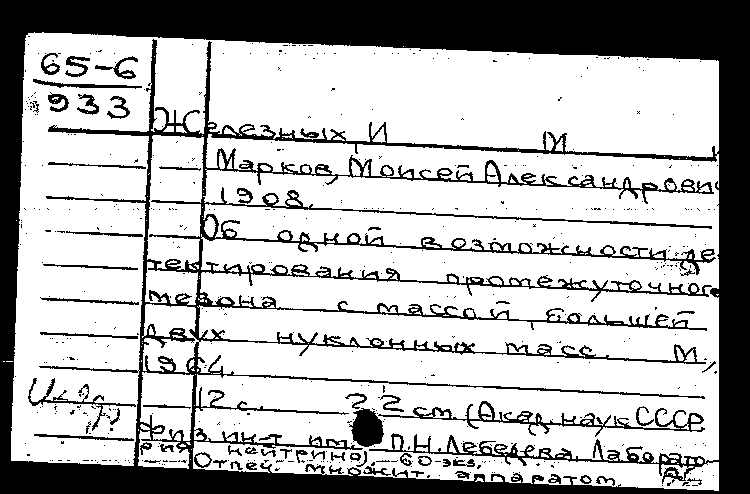 65-6
933
Железных, И М
Марков, Моисей Александрович
1908.
Об одной возможности де-
тектирования промежуточного
мезона с массой, большей
двух нуклонных масс. М,
1964.
12 с. 22 см (Акад. наук СССР.
Физ. ин-т им. П.Н. Лебедева. Лаборато-
рия нейтрино) 60 экз.
Отпеч. множит. аппаратом.